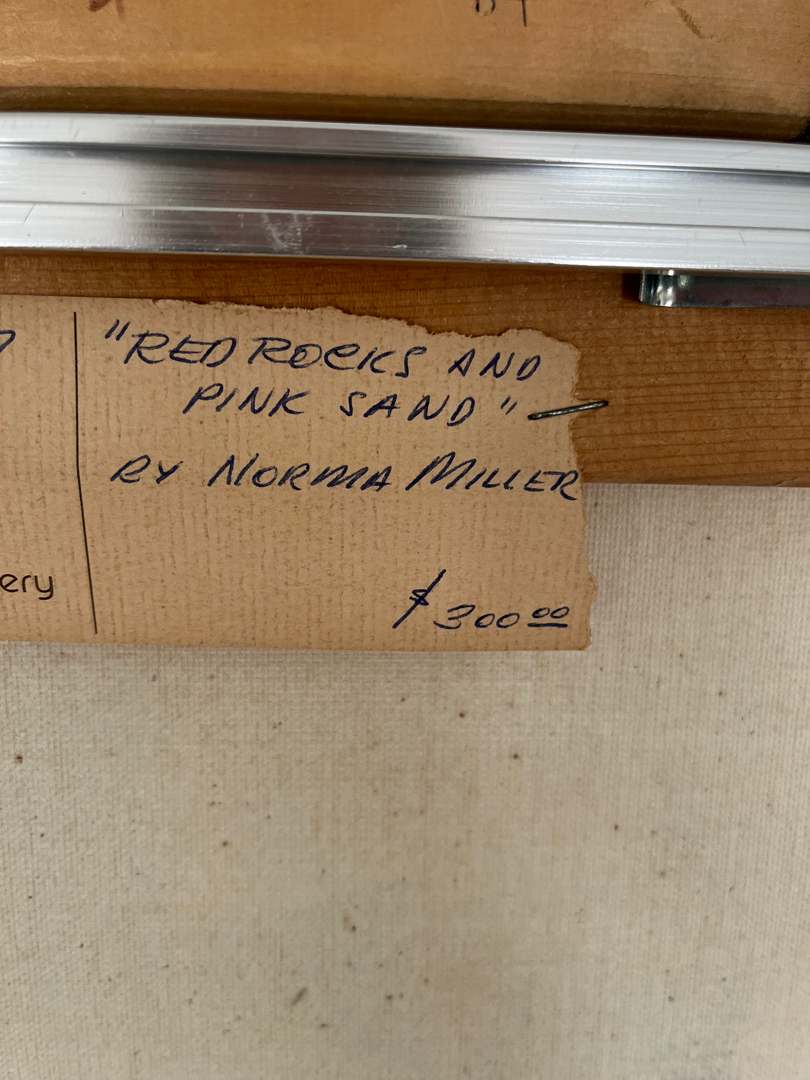 "RED ROCKS AND
PINK SAND"
BY NORMA MILLER
ery
$300.00